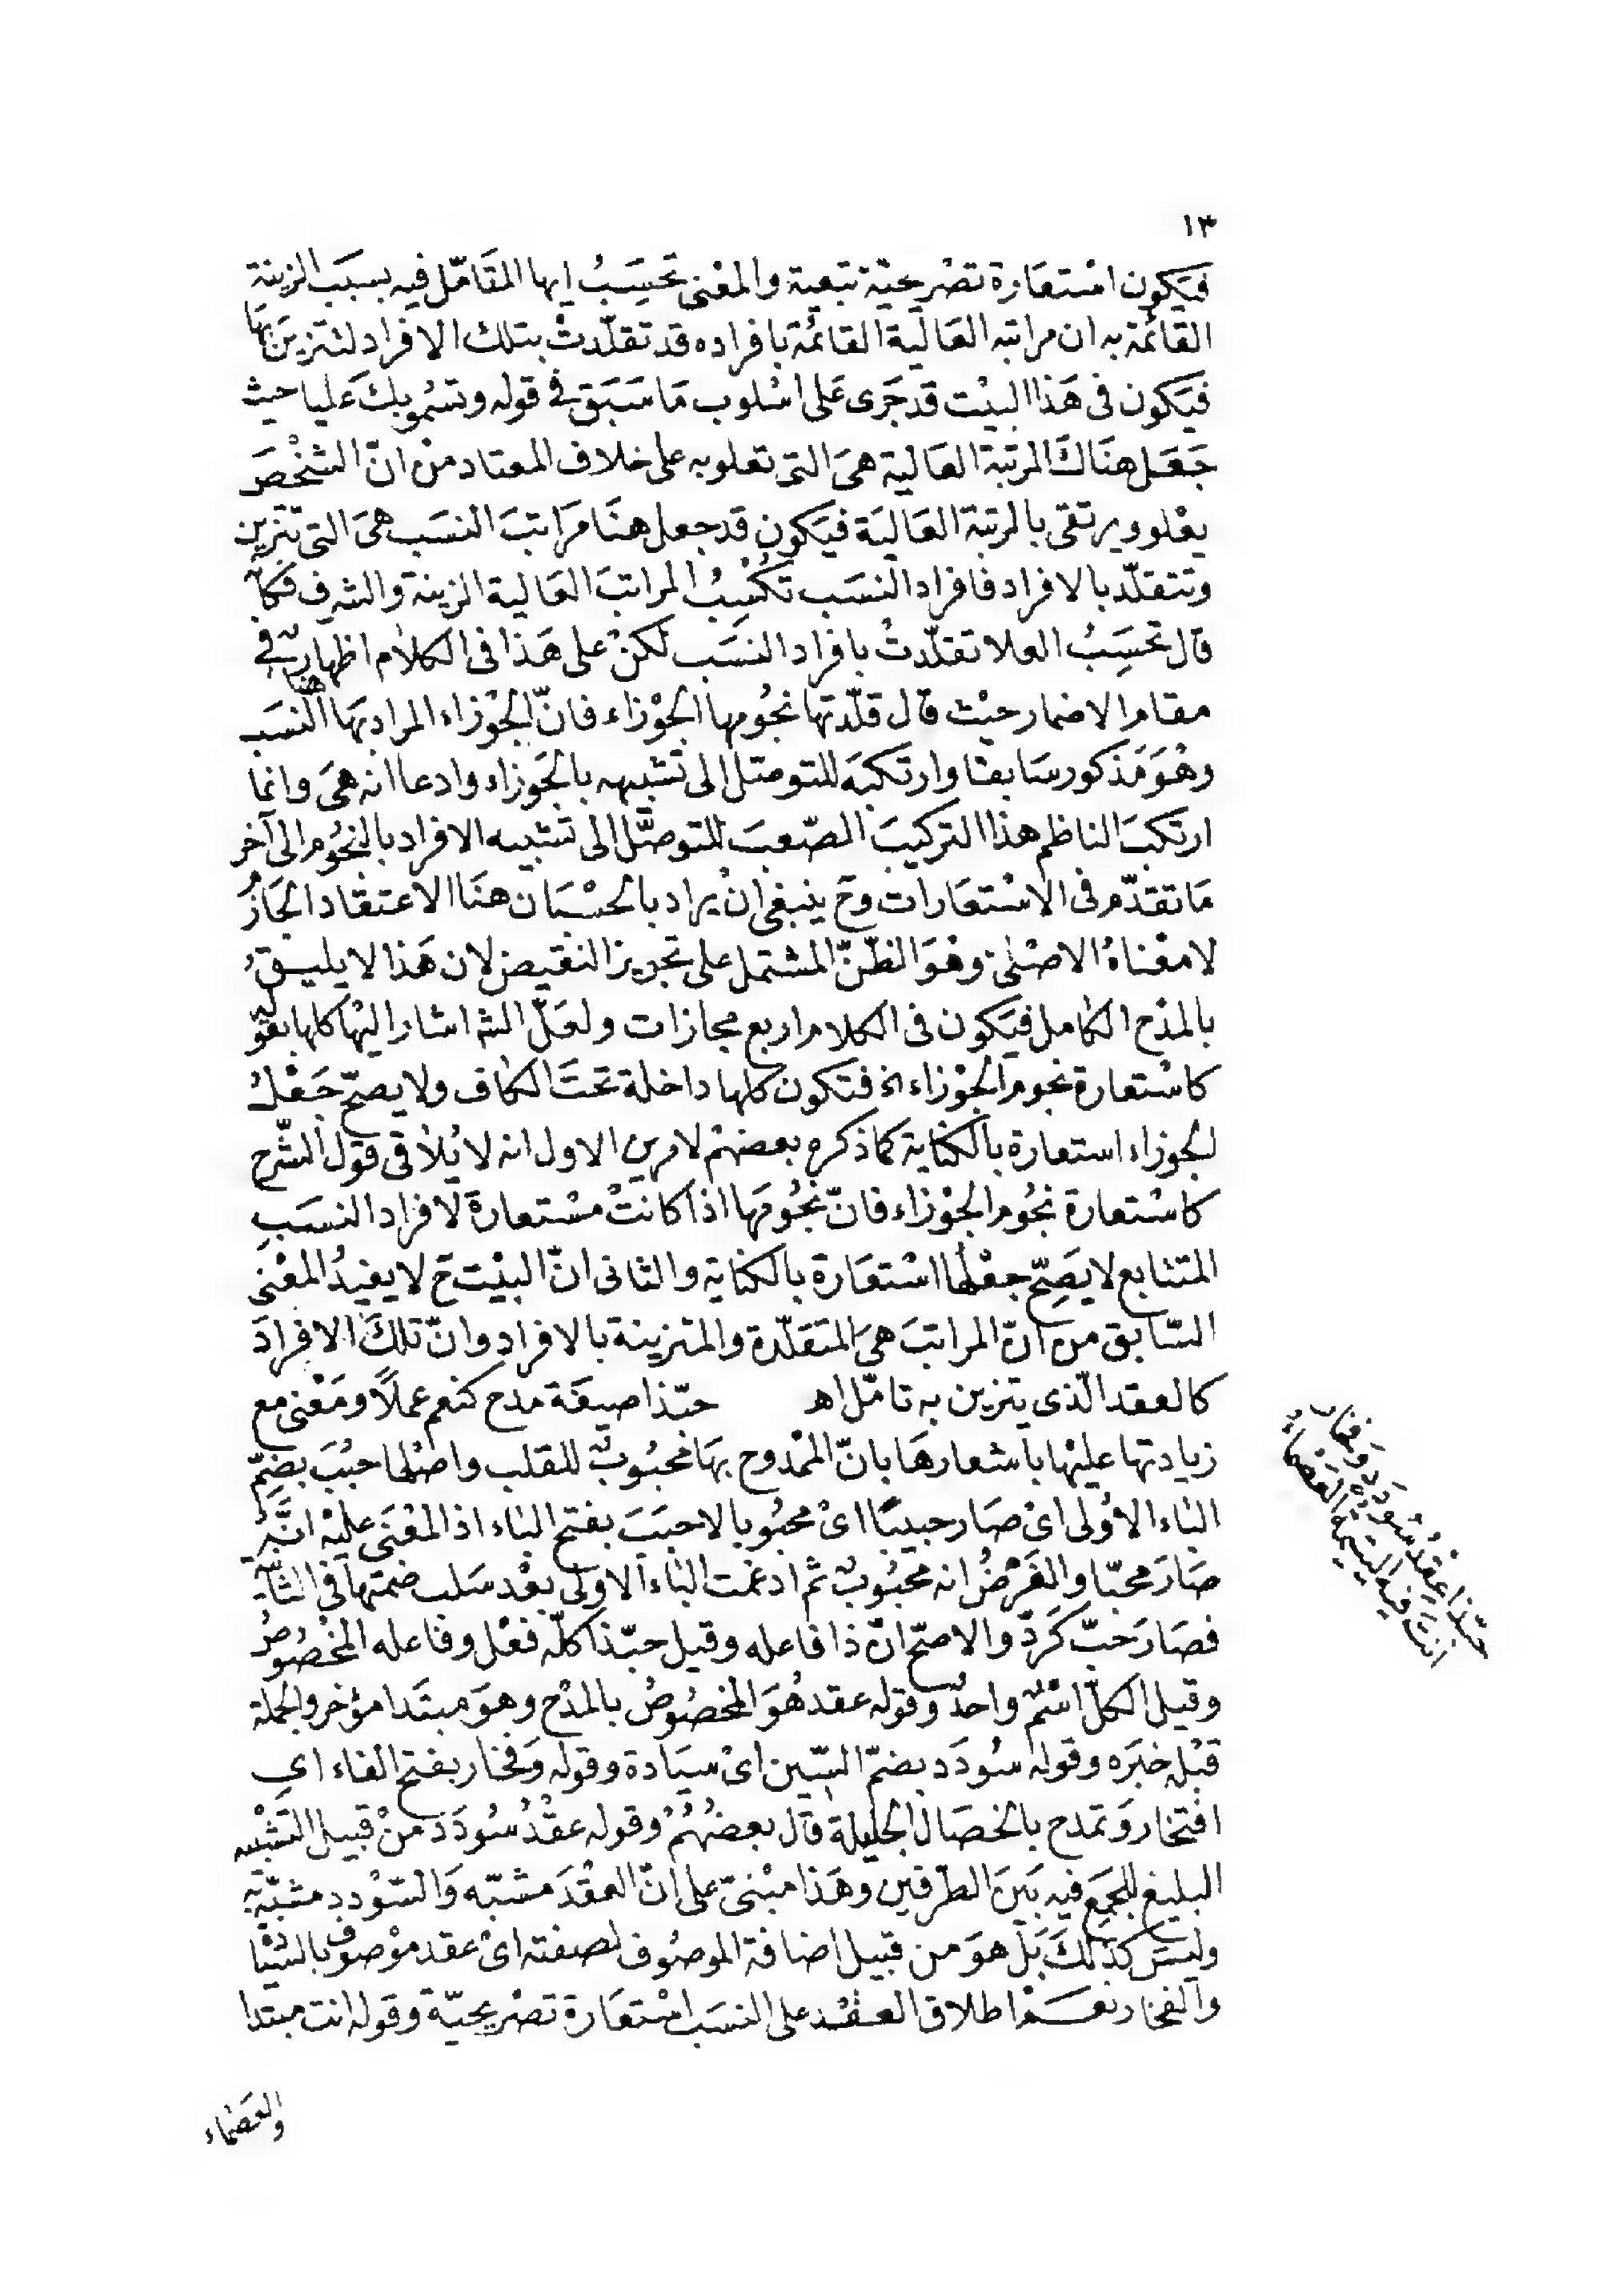 ١٣
فيَكون امْستعَارة تصْريحيّة تبَعية والمعْنى تحسَِبُ ايها المتَامّل فيه بسبَب الزينة
القائمة به ان مراتبه العَالية القائمة بافراده قد تقلّدتْ بتلك الافراد لتتزينَ بهَا
فيَكون فى هَذا البيْت قد جَرى عَلى اسْلوب مَا سَبَق فى قوله وتسْمو بكَ عَليا حيث
جَعَل هنَاكَ المرتبَة العَالية هىَ التى تعلو به على خلاف المعتاد منْ انّ الشخْصَ
يعْلو ويرتقى بالمرتبة العَاليَة فيَكون قد جعل هنَا مرَاتبَ النسَب هىَ التى تتزين
وتتقلّد بالافراد فافراد النسَب تكسْبُ المراتبَ العَالية الزينة والشرف فكانه
قال تحسَِبُ العلا تقلّدتْ بافراد النسَب لكنْ على هَذا فى الكلام اظهار فى
مقام الاضمار حيْث قال قلّدتها نجُومها الجوْزاء فانّ الجوْزاء المراد بهَا هنا النسَب
وهْوَ مَذكور سَابقا وارتكبَه للتوصّل الى تشبيهه بالجَوزاء وادعا انه هىَ وانما
ارتكبَ الناظم هذا التركيبَ الصّعبَ للتوصّل الى تشبيه الافراد بالنجُوم الى آخر
مَا تقدّم فى الاسْتعَارات وحَ ينبغى انْ يراد بالحسْبَان هنَا الاعتقاد الجَازمُ
لا معْناهُ الاصْلىّ وهْوَ الظنّ المشتمل على تجويز النقيض لان هَذا لا يليقُ
بالمدْح الكامل فيَكون فى الكلام اربع مجازات ولعَلّ الشه اشار اليْها كلها بقوله
كاسْتعارة نجوم الجوْزاء اﻫ فتكون كلها داخلة تحتَ الكاف ولا يصحّ جَعْلُ
الجوزاء استعارة بالكناية كما ذكره بعضهْم لامرين الاول انه لا يُلاقى قول الشّرح
كاسْتعارة نجُوم الجوْزاء فانّ نجُومَها اذا كانتْ مسْتعارة لافراد النسَبِ
المتتابع لا يصَِحّ جعْلُها اسْتعَارة بالكناية والثانى انّ البيْت حَ لا يفيدُ المعْنى
السّابق من انّ المراتبَ هىَ المتقلّدة والمتزينة بالافراد وانّ تلكَ الافرادَ
كالعقد الّذى يتزين به تامّل اهـ حبّذا صيغَة مدح كنعم عملاً ومَعْنى مع
زيادتها عليْها باشعارهَا بانّ الممْدوح بهَا محبُوبٌ للقلب واصْلها حبُبَ بضمِّ
الباء الاُولى اىْ صَار حبيبًا اىْ محبُوبا لا حبَبَ بفتح الباء اذ المعْنَى عليْه انّهُ
صَارَ محبّا والغَرَضُ انه محبُوبٌ ثمّ ادغمت الباء الاولى بعْد سَلب ضمتها فى الثانية
فصَارَ حَبّ كَرَدّ والاصحّ انّ ذا فاعله وقيل حبّذا كلّه فعْل وفاعله المخْصُوصُ
وقيل الكلّ اسْمٌ واحدٌ وقوله عقد هُوَ المخصُوصُ بالمدْح وهوَ مبتَدا مؤخر والجملة
قبْله خبَره وقوله سُودَد بضمّ السّين اىْ سيَادة وقوله وَفخار بفتح الفاء اىِ
افتخار وَتمَدح بالخصَال الجليلة قال بعضُهُمْ وقوله عقْدُ سُودَد منْ قبيل التشْبيه
البليغ للجمَع فيه بَينَ الطرفين وهَذا مبْنىّ على انّ العقْدَ مشبّه وَالسّوْدد مشبّه به
وليسَ كذلكَ بَلْ هوَ من قبيل اضافة الموصُوف لصفته اىْ عقد موْصوف بالسّيادة
والفخار نعَمْ اطلاق العقْد على النسَب اسْتعَارة تصْريحيّة وقوله انت مبتدا
والعَصْماء
حبّذا عِقْدُ سُودَدٍ وَفخار
انتَ فيه اليَتيمةُ العَصْماءُ